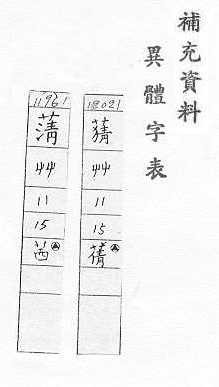 補充資料
異體字表
艸
11
15
蒨
11961
蔳
艸
11
15
茜